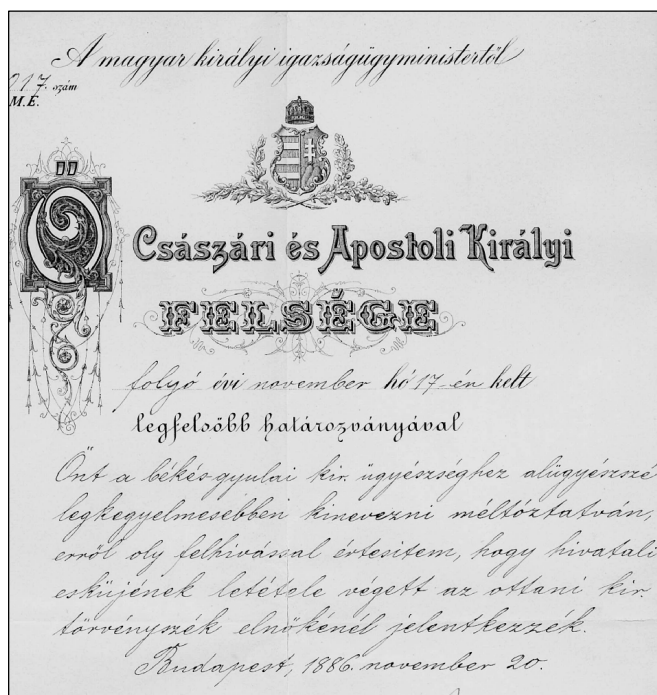 A magyar királyi igazságügyministertől
217. szám
M.E.
Ő Császári és Apostoli Királyi
FELSÉGE
folyó évi november hó 17-én kelt
legfelsőbb határozványával
Önt a békés-gyulai kir. ügyészséghez alügyészszé
legkegyelmesebben kinevezni méltóztatván,
erről oly felhivással értesitem, hogy hivatali
esküjének letétele végett az ottani kir.
törvényszék elnökénél jelentkezzék.
Budapest, 1886. november 20.